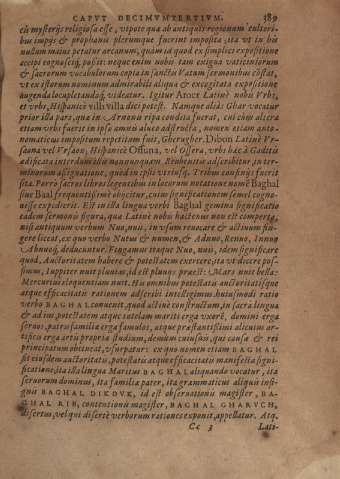 CAPVT DECIMVMTERTIVM. 389
cis mysterijs religiosa esse, vtpote qua ab antiquis regionum cultori-
bus impijs & prophanis plerumque fuerint imposita; ita vt in his
nullum maius petatur arcanum, quàm id quod ex simplici expositione
accipi cognoscíq; possit: neque enim nobis tam exigua vaticiniorum
& sacrorum vocabulorum copia in sanctis Vatum sermonibus côstat,
vt ex istorum nominum admirabili aliqua & excogitata expositione
augenda locupletandáq; videatur. Igitur Ahuer Latinè nobis Vrbs,
et vrbs, Hispanicè villa dici potest. Namque alia Ghar vocatur
prior illa pars, qua in Arnonis ripa condita fuerat, cui cùm altera
etiam vrbs fuerit in ipso amnis alueo adstructa, nomen etiam auto-
nomaticus impositum repetitum fuit, Gherugher. Dibon Latinè Vr-
sona vel Vrsaon, Hispanicè Ossuna, vel Ossera, vrbs hac à Gaddita
ædificata interdum illis nonnunquam Reubenitis adscribitur, in ter-
minorum assignatione, quod in ipsis vtriusq; Tribus confinijs fuerit
sita. Porrò sacros libros legentibus in locorum notatione nomè Baghal
siue Baal frequentissimè obijcitur, cuius significationem semel cogno-
uisse expedierit. Est in illa lingua verbi Baghal gemina significatio
eadem sermonis figura, qua Latinè nobis hactenus non est comperta,
nisi antiquum verbum Nuo, nuis, in vsum reuocare & actiuum fin-
gere liceat, ex quo verbo Nutus & numen, & Adnuo, Renuo, Innuo
Abnuóq; deducuntur. Fingamus itaque Nuo, nuis, idem significare
quod, Auctoritatem habere & potestatem exercere; ita vt dicere pos-
simus, Iuppiter nuit pluuias, id est pluuijs præest: Mars nuit bella:
Mercurius eloquentiam nuit. His omnibus potestatis auctoritatísque
atque efficacitatis rationem adscribi intelligimus. huiusmodi ratio
verbo BAGHAL conuenit, quod actiuè constructum, in sacra lingua
& ad ius potestatem atque tutelam mariti erga vxorē, domini erga
seruos, patrisfamilia erga famulos, atque præstantissimi alicuius ar-
tificis erga artis propria studium, demùm cuiusuis, qui causa & rei
principatum obtineat, vsurpatur: ex quo nomen etiam BAGHAL
fit eiusdem auctoritatis, potestatis atque efficacitatis manifesta signi-
ficatione; ita illa lingua Maritus BAGHAL aliquando vocatur, ita
seruorum dominus, ita familia pater, ita grammaticus aliquis insi-
gnis BAGHAL DIKDVK, id est obseruationis magister, BA-
GHAL RIB, contentionis magister, BAGHAL GHARVCH,
disertus, vel qui disertè verborum rationes exponit, appellatur. Atq.
Cc 3 Lati-